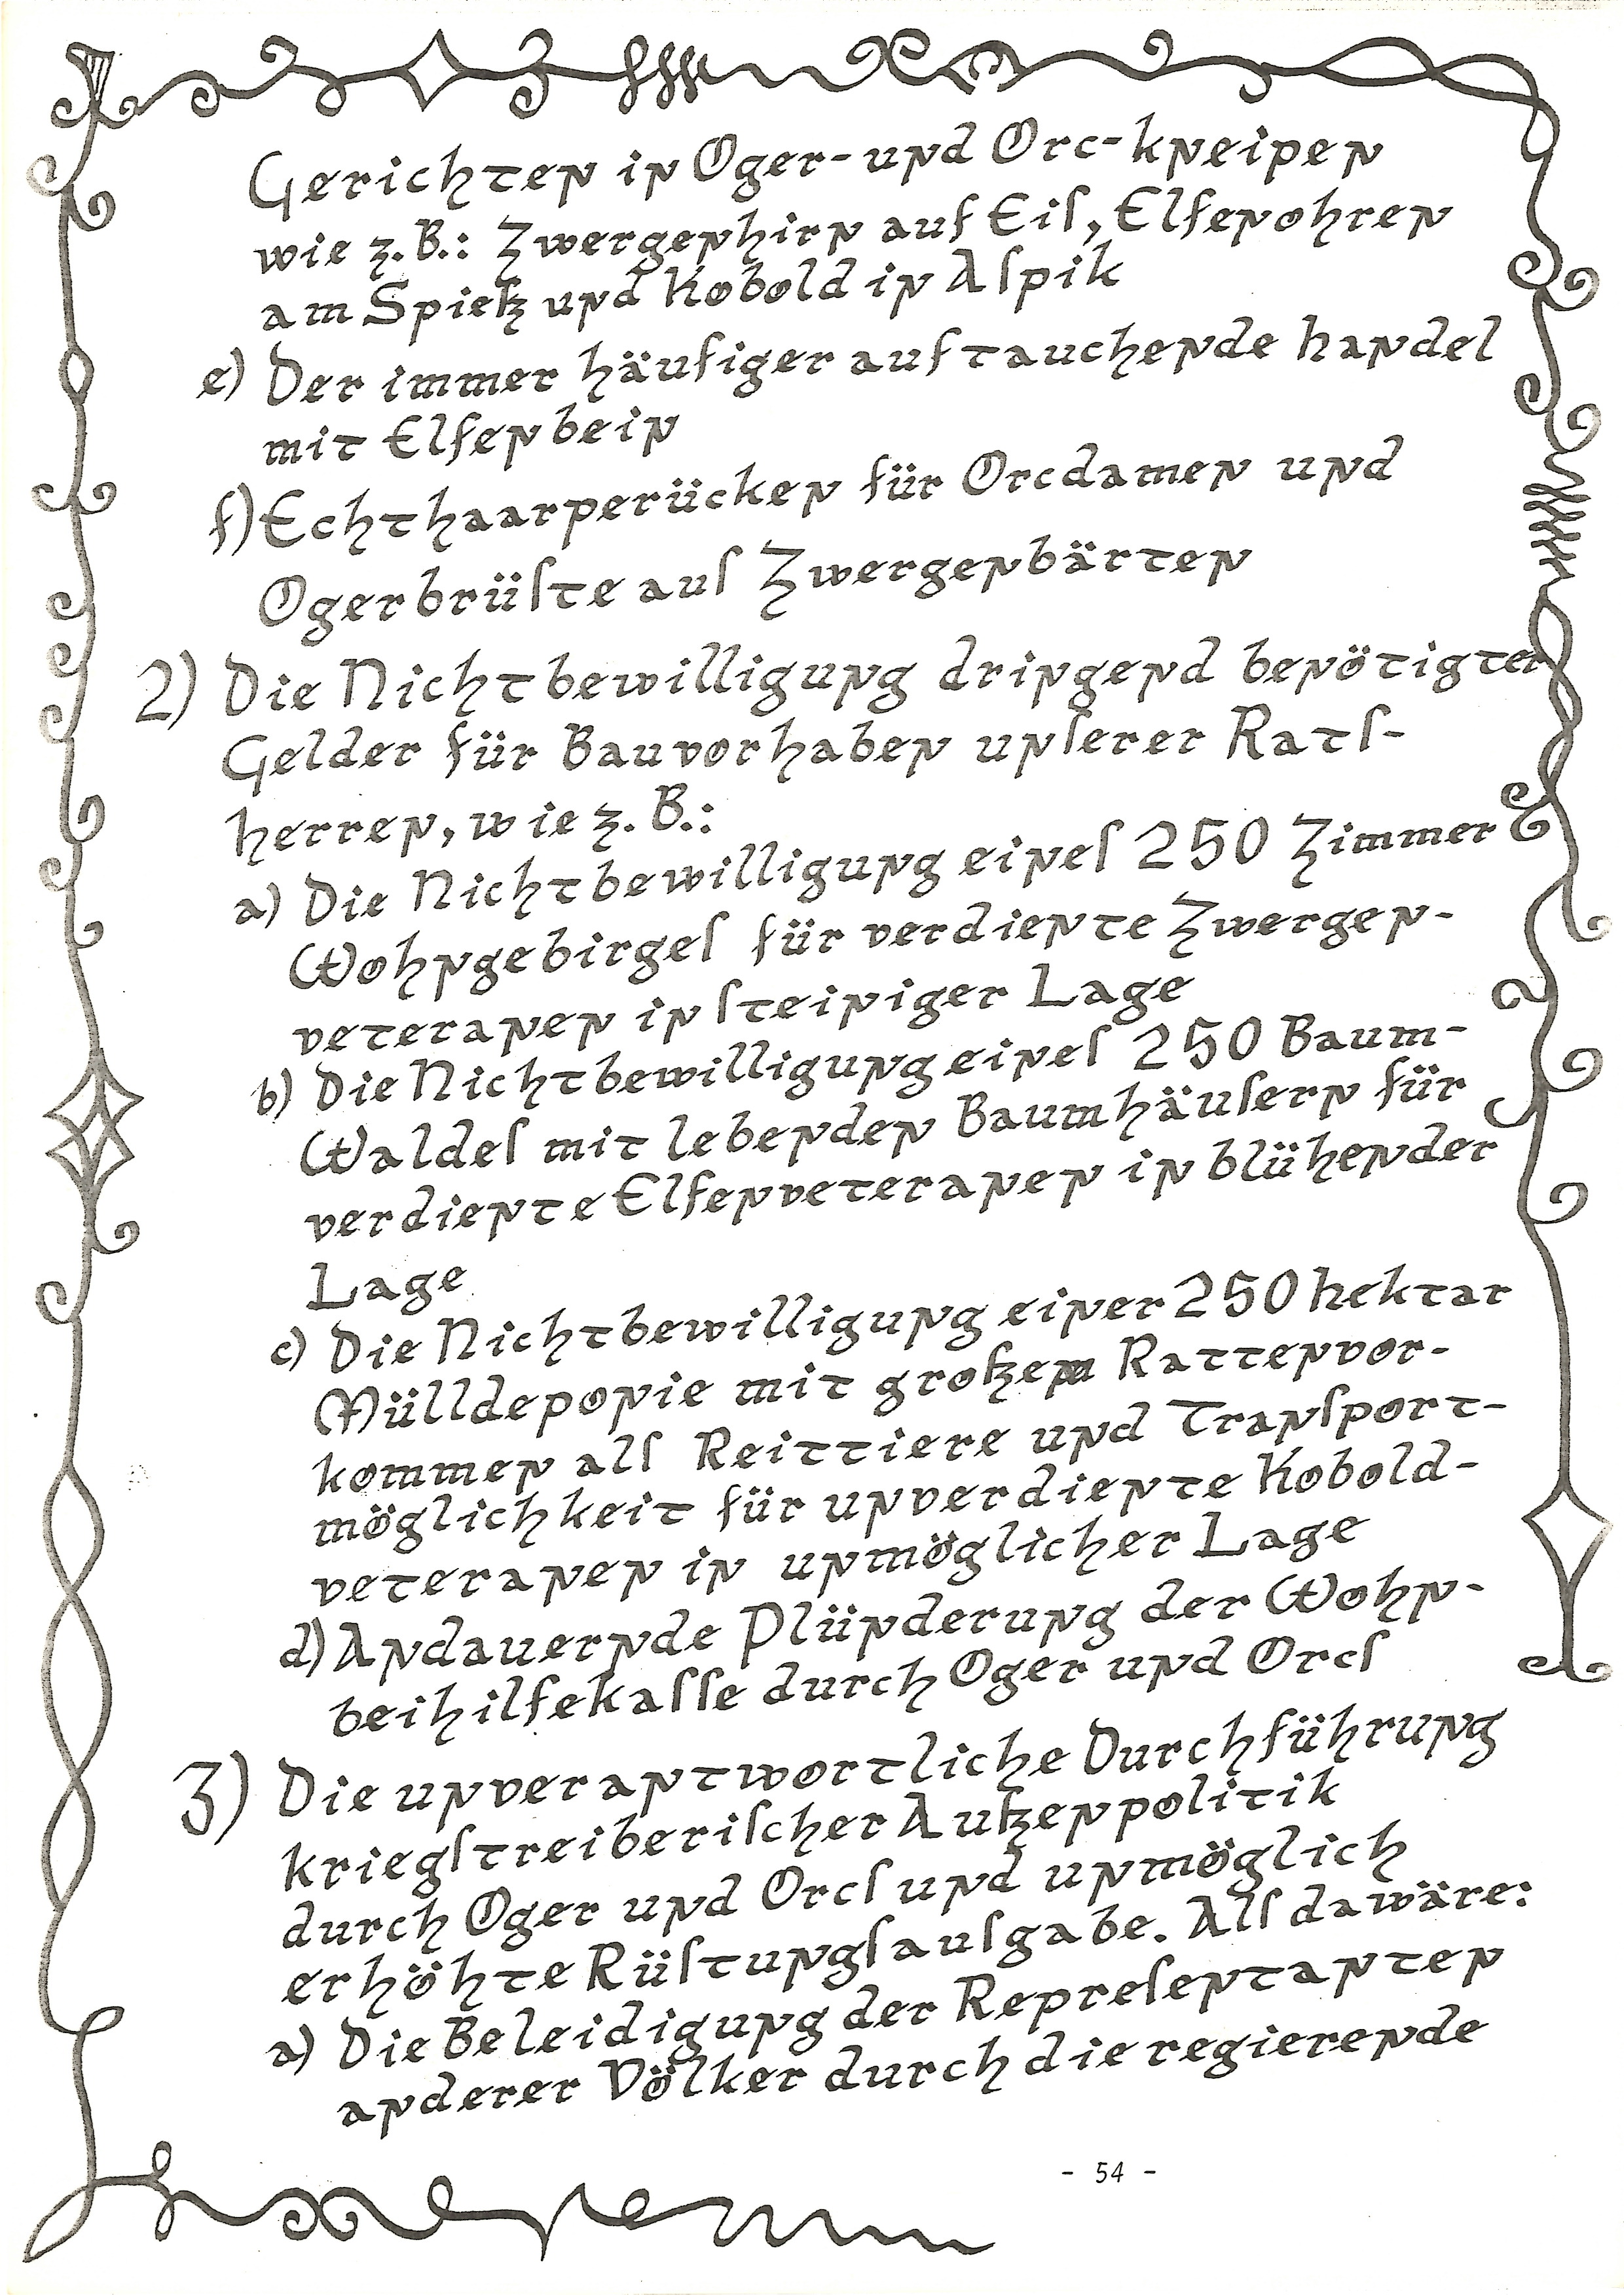 Gerichten in Oger- und Orc-kneipen
wie z.B.: Zwergenhirn auf Eis, Elfenohren
am Spieß und Kobold in Aspik
e) Der immer häufiger auftauchende Handel
mit Elfenbein
f) Echthaarperücken für Orcdamen und
Ogerbrüste aus Zwergenbärten
2) Die Nichtbewilligung dringend benötigter
Gelder für Bauvorhaben unserer Rats-
herren, wie z.B.:
a) Die Nichtbewilligung eines 250 Zimmer
Wohngebirges für verdiente Zwergen-
veteranen in steiniger Lage
b) Die Nichtbewilligung eines 250 Baum-
Waldes mit lebenden Baumhäusern für
verdiente Elfenveteranen in blühender
Lage
c) Die Nichtbewilligung einer 250 Hektar
Mülldeponie mit großem Rattenvor-
kommen als Reittiere und Transport-
möglichkeit für unverdiente Kobold-
veteranen in unmöglicher Lage
d) Andauernde Plünderung der Wohn-
beihilfekasse durch Oger und Orcs
3) Die unverantwortliche Durchführung
kriegstreiberischer Außenpolitik
durch Oger und Orcs und unmöglich
erhöhte Rüstungsausgabe. Als da wäre:
a) Die Beleidigung der Represententanten
anderer Völker durch die regierende
- 54 -